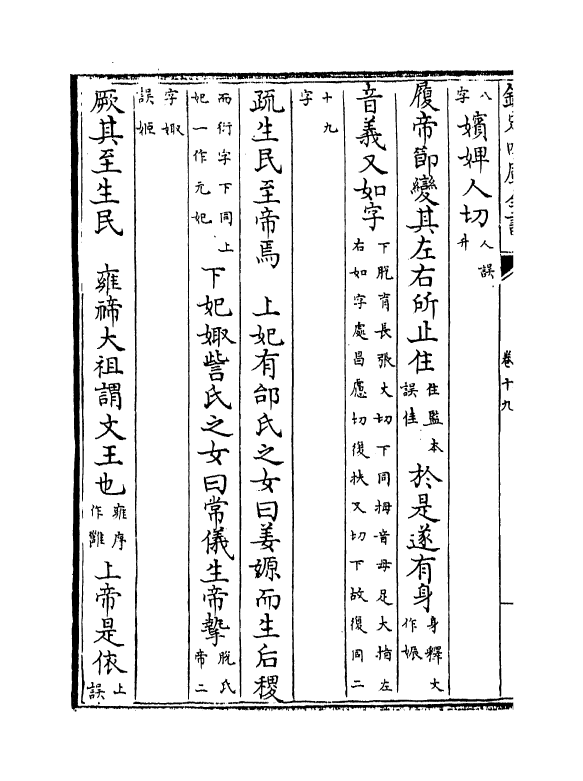 欽定四庫全書 卷十九
八字 嬪婢人切 人誤升
履帝節變其左右所止住 住監本誤佳 於是遂有身 身釋大作娠
音義又如字 下脱育長張丈切下同拇音母足大指左右如字處昌慮切復扶又切下故復同二
十九字
疏生民至帝焉 上妃有邰氏之女曰姜嫄而生后稷
而衍字下同上妃一作元妃 下妃娵訾氏之女曰常儀生帝摯 脱氏帝二
字娵誤姬
厥其至生民 雍禘大祖謂文王也 雍序作雝 上帝是依 上誤